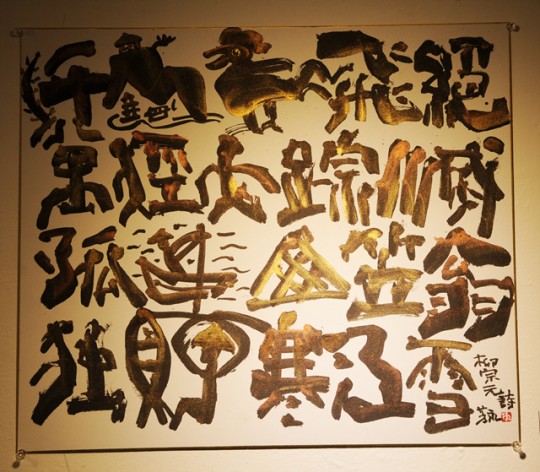 千山鳥飛絕
萬徑人踪滅
孤舟蓑笠翁
独釣寒江雪
柳宗元詩